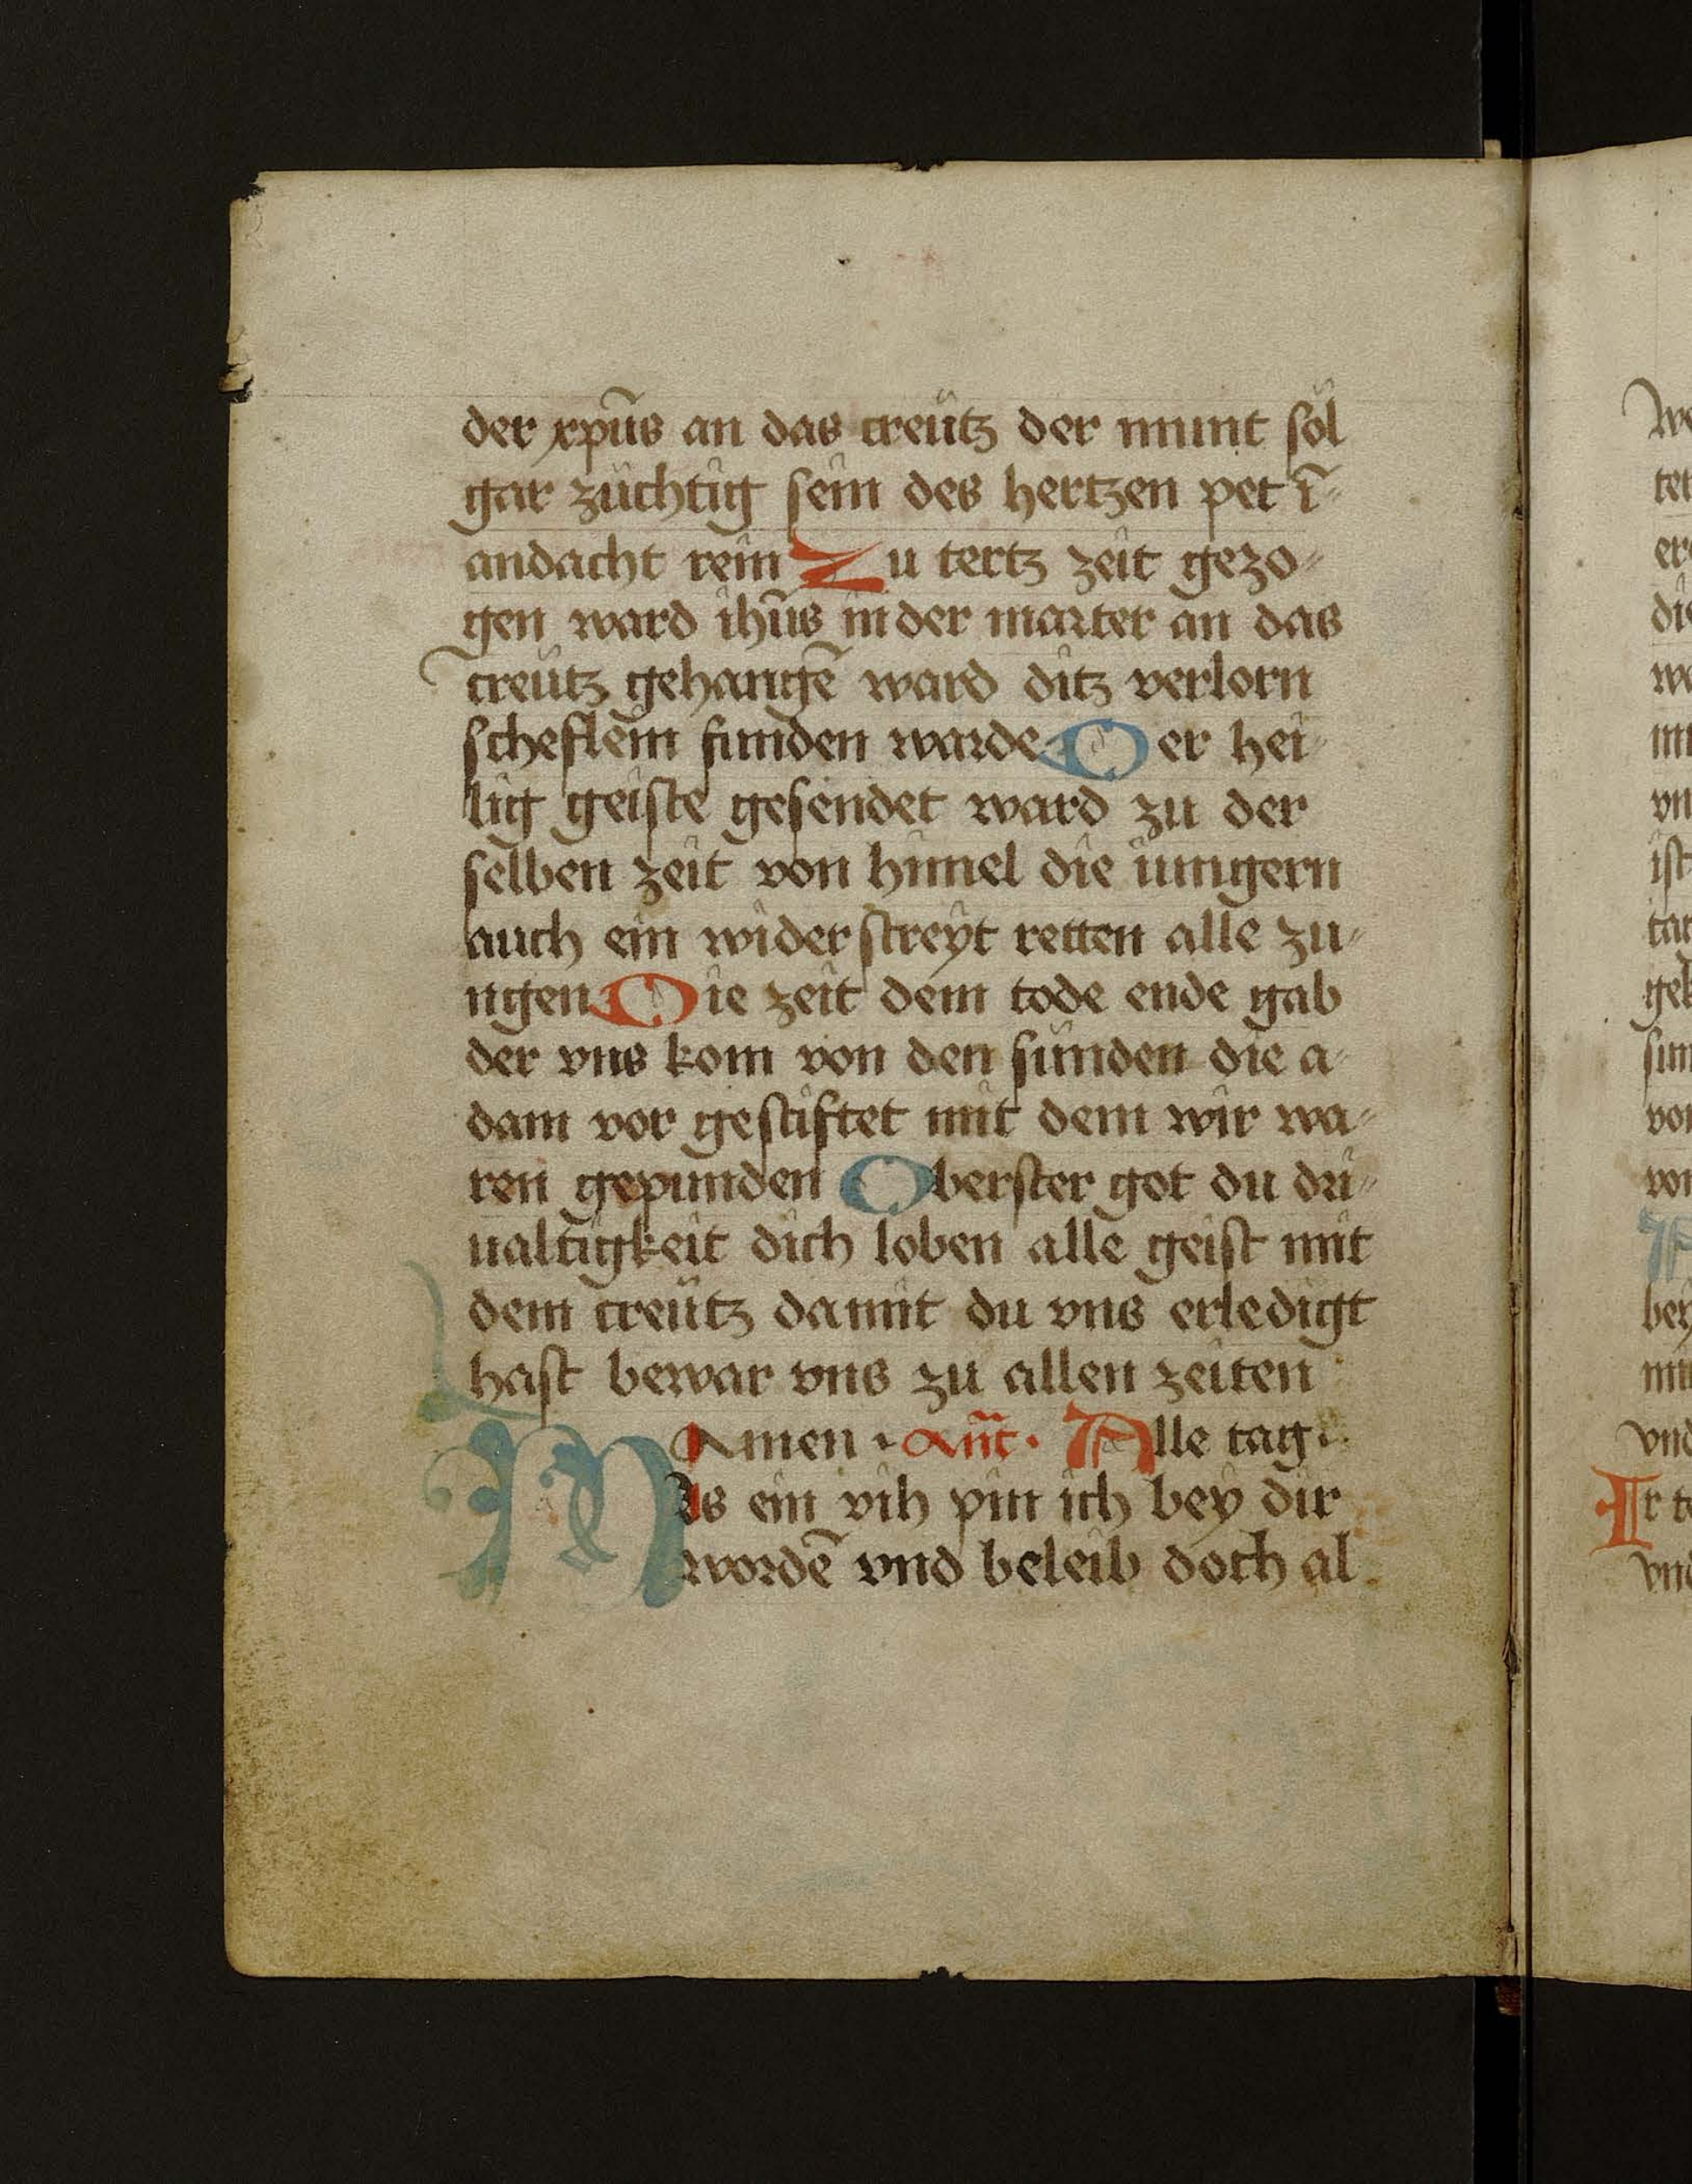 der xpūs an das creütz der munt söl
gar züchtig sein des hertzen pet ī
andacht rein Zu tertz zeit gezo⸗
gen ward ihūs in der marter an das
creütz gehangē ward ditz verlorn
scheflein funden warde Der hei⸗
lig geiste gesendet ward zu der
selben zeit von himel die iungern
auch ein widerstreyt retten alle zu⸗
ngen Die zeit dem tode ende gab
der vns kom von den sünden die a⸗
dam vor gestiftet mit dem wir wa⸗
ren gepunden Oberster got du dri⸗
ualtigkeit dich loben alle geist mit
dem creütz damit du vns erledigt
hast bewar vns zu allen zeiten
Amen · Añt · Alle tag ·
Als ein vih pin ich bey dir
wordē vnd beleib doch al